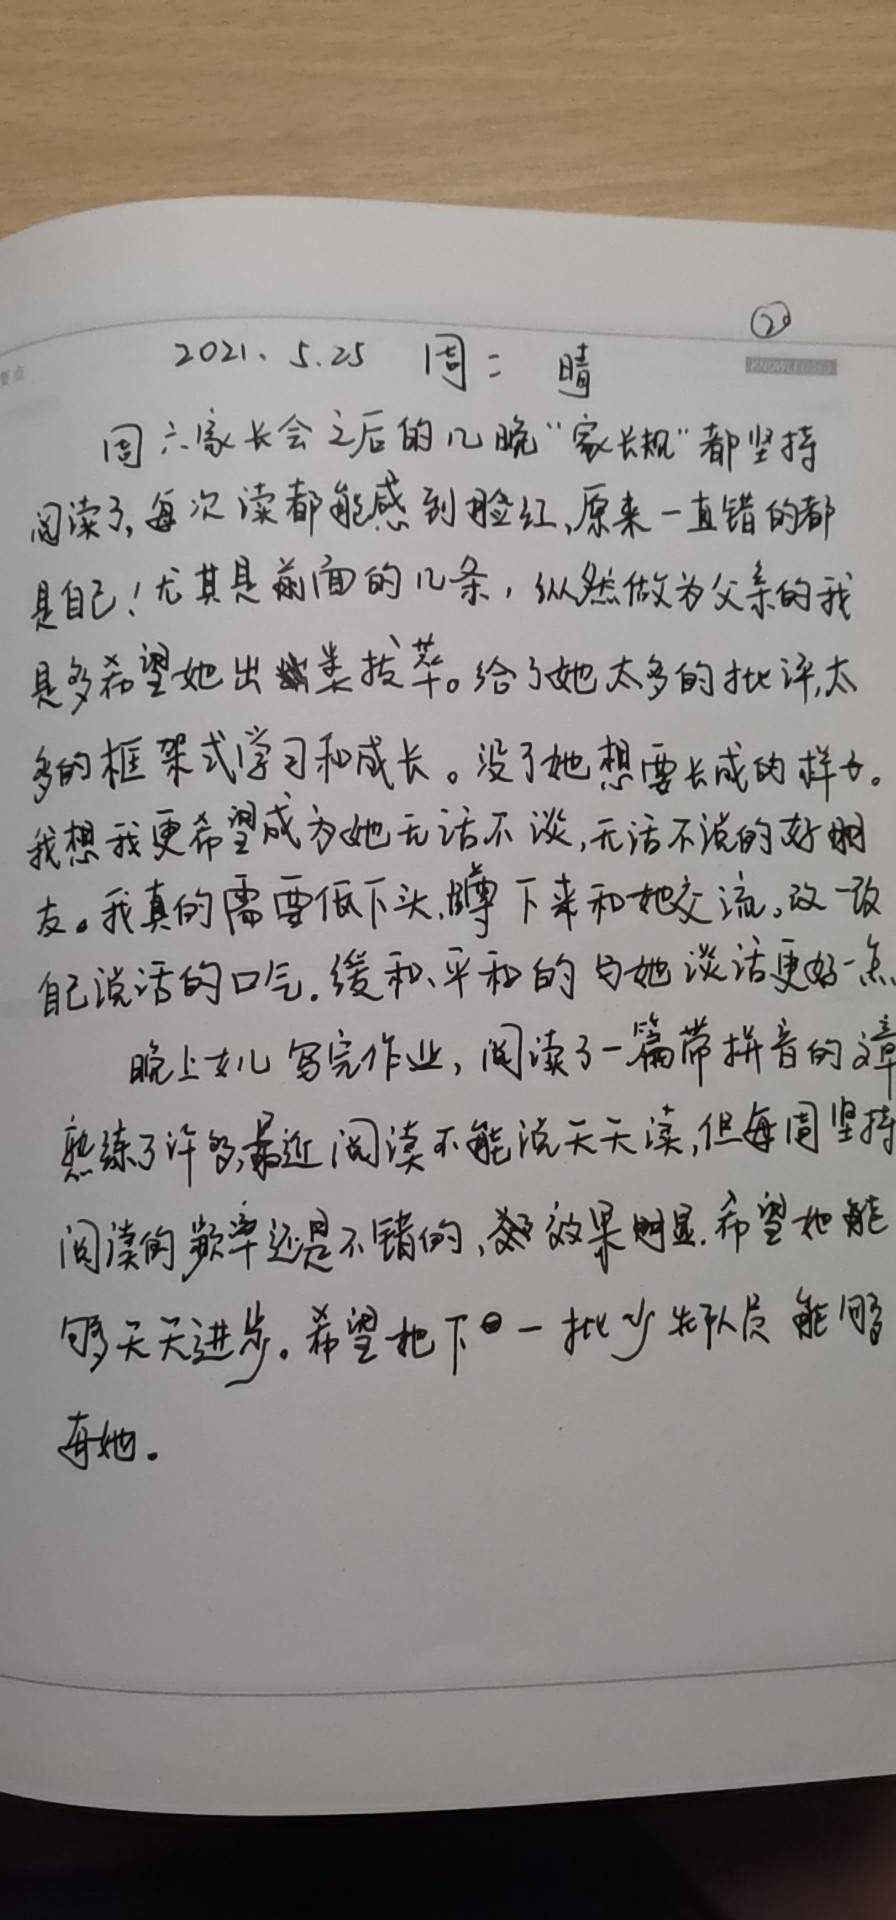 ⑳
2021.5.25 周二 晴
KNOWLEDGE
要点
周六家长会之后的几晚“家长规”都坚持
阅读了,每次读都能感到脸红,原来一直错的都
是自己!尤其是前面的几条,纵然做为父亲的我
是多希望她出类拔萃。给了她太多的批评,太
多的框架式学习和成长。没了她想要长成的样子。
我想我更希望成为她无话不谈,无话不说的好朋
友。我真的需要低下头,蹲下来和她交流,改一改
自己说话的口气.缓和、平和的与她谈话更好一点
晚上女儿写完作业,阅读了一篇带拼音的文章
熟练了许多,最近阅读不能说天天读,但每周坚持
阅读的频率还是不错的,效果明显.希望她能
够天天进步。希望她下一批少先队员能够
有她。